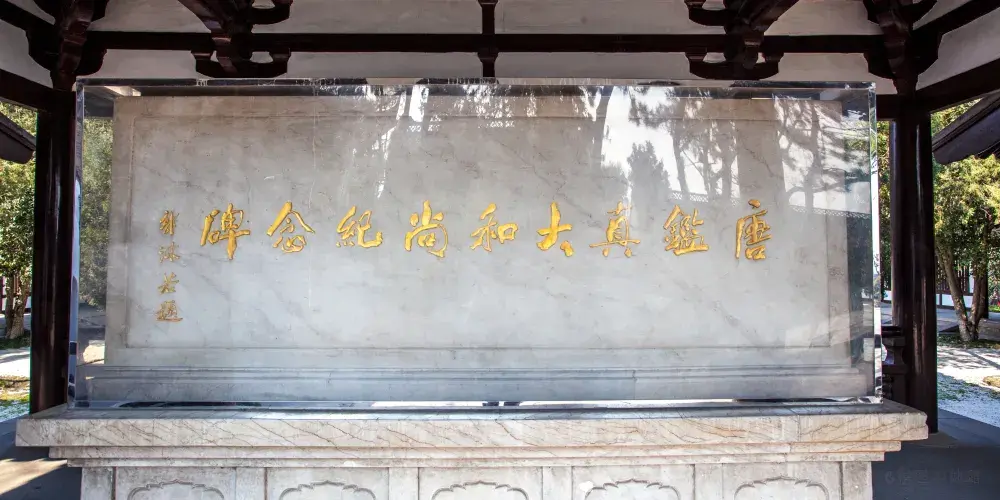 唐鑑真大和尚纪念碑
郭沫若题